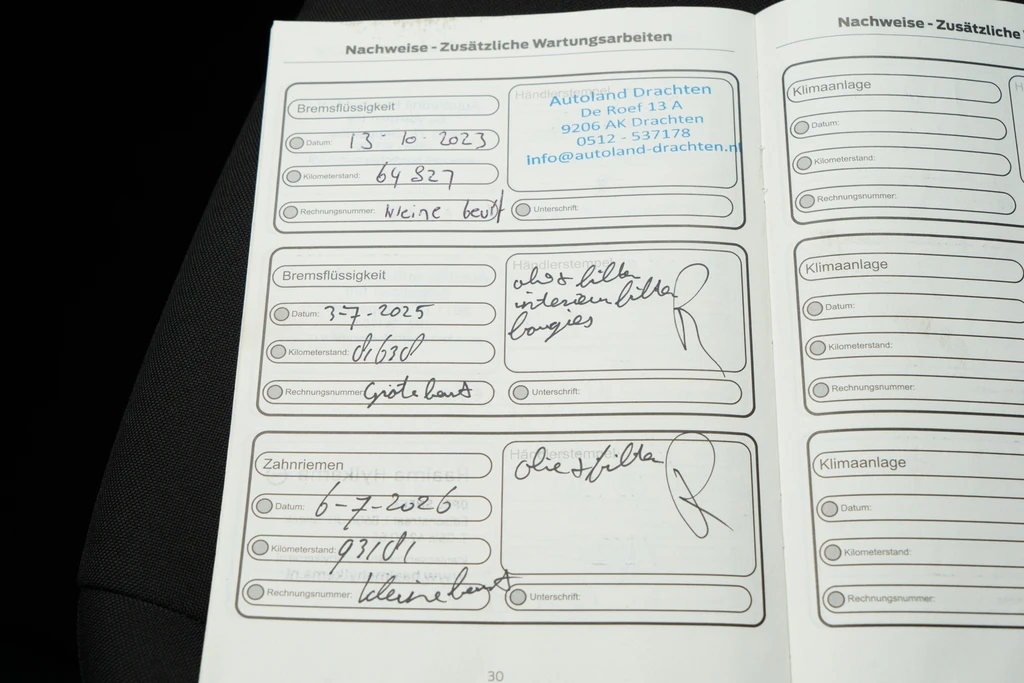 Nachweise - Zusätzliche Wartungsarbeiten
Bremsflüssigkeit
Datum: 13-10-2023
Kilometerstand: 64827
Rechnungsnummer: kleine beurt
Händlerstempel
Autoland Drachten
De Roef 13 A
9206 AK Drachten
0512 - 537178
info@autoland-drachten.nl
Unterschrift:
Bremsflüssigkeit
Datum: 3-7-2025
Kilometerstand: 81638
Rechnungsnummer: Grote beurt
Händlerstempel
olie + filter
interieur filter
bougies
Unterschrift:
Zahnriemen
Datum: 6-7-2026
Kilometerstand: 93181
Rechnungsnummer: kleine beurt
Händlerstempel
olie + filter
Unterschrift:
30
Nachweise - Zusätzliche
Klimaanlage
Datum:
Kilometerstand:
Rechnungsnummer:
Klimaanlage
Datum:
Kilometerstand:
Rechnungsnummer:
Klimaanlage
Datum:
Kilometerstand:
Rechnungsnummer: